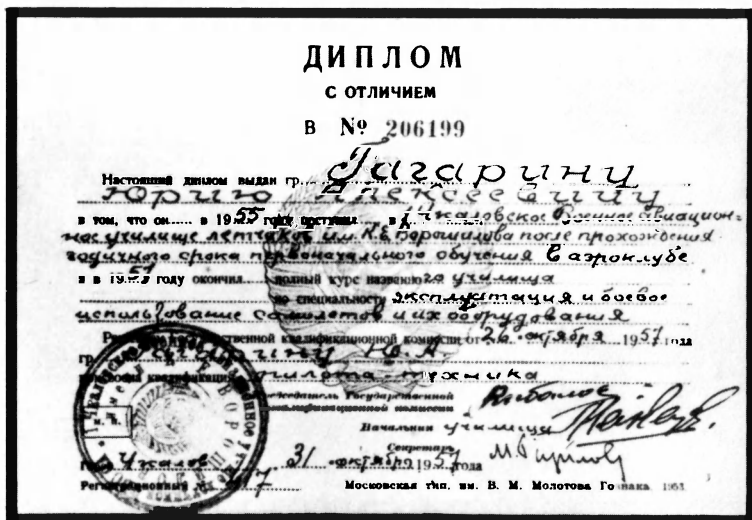 ДИПЛОМ
С ОТЛИЧИЕМ
В № 206199
Настоящий диплом выдан гр. Гагарину
Юрию Алексеевичу
в том, что он в 1955 году поступил в 1 Чкаловское Военное авиацион-
ное училище летчиков им. К.Е. Ворошилова после прохождения
годичного срока первоначального обучения в аэроклубе
и в 1957 году окончил полный курс названного училища
по специальности эксплуатация и боевое
использование самолетов и их оборудования
квалификационной комиссии от 26 октября 1957 года
гр. Гагарину Ю.А.
квалификация пилота техника
Председатель Государственной
квалификационной комиссии
Начальник училища
Секретарь
Чкалов 31 октября 1957 года
Регистрационный № 7
Московская тип. им. В. М. Молотова Гознака 1953